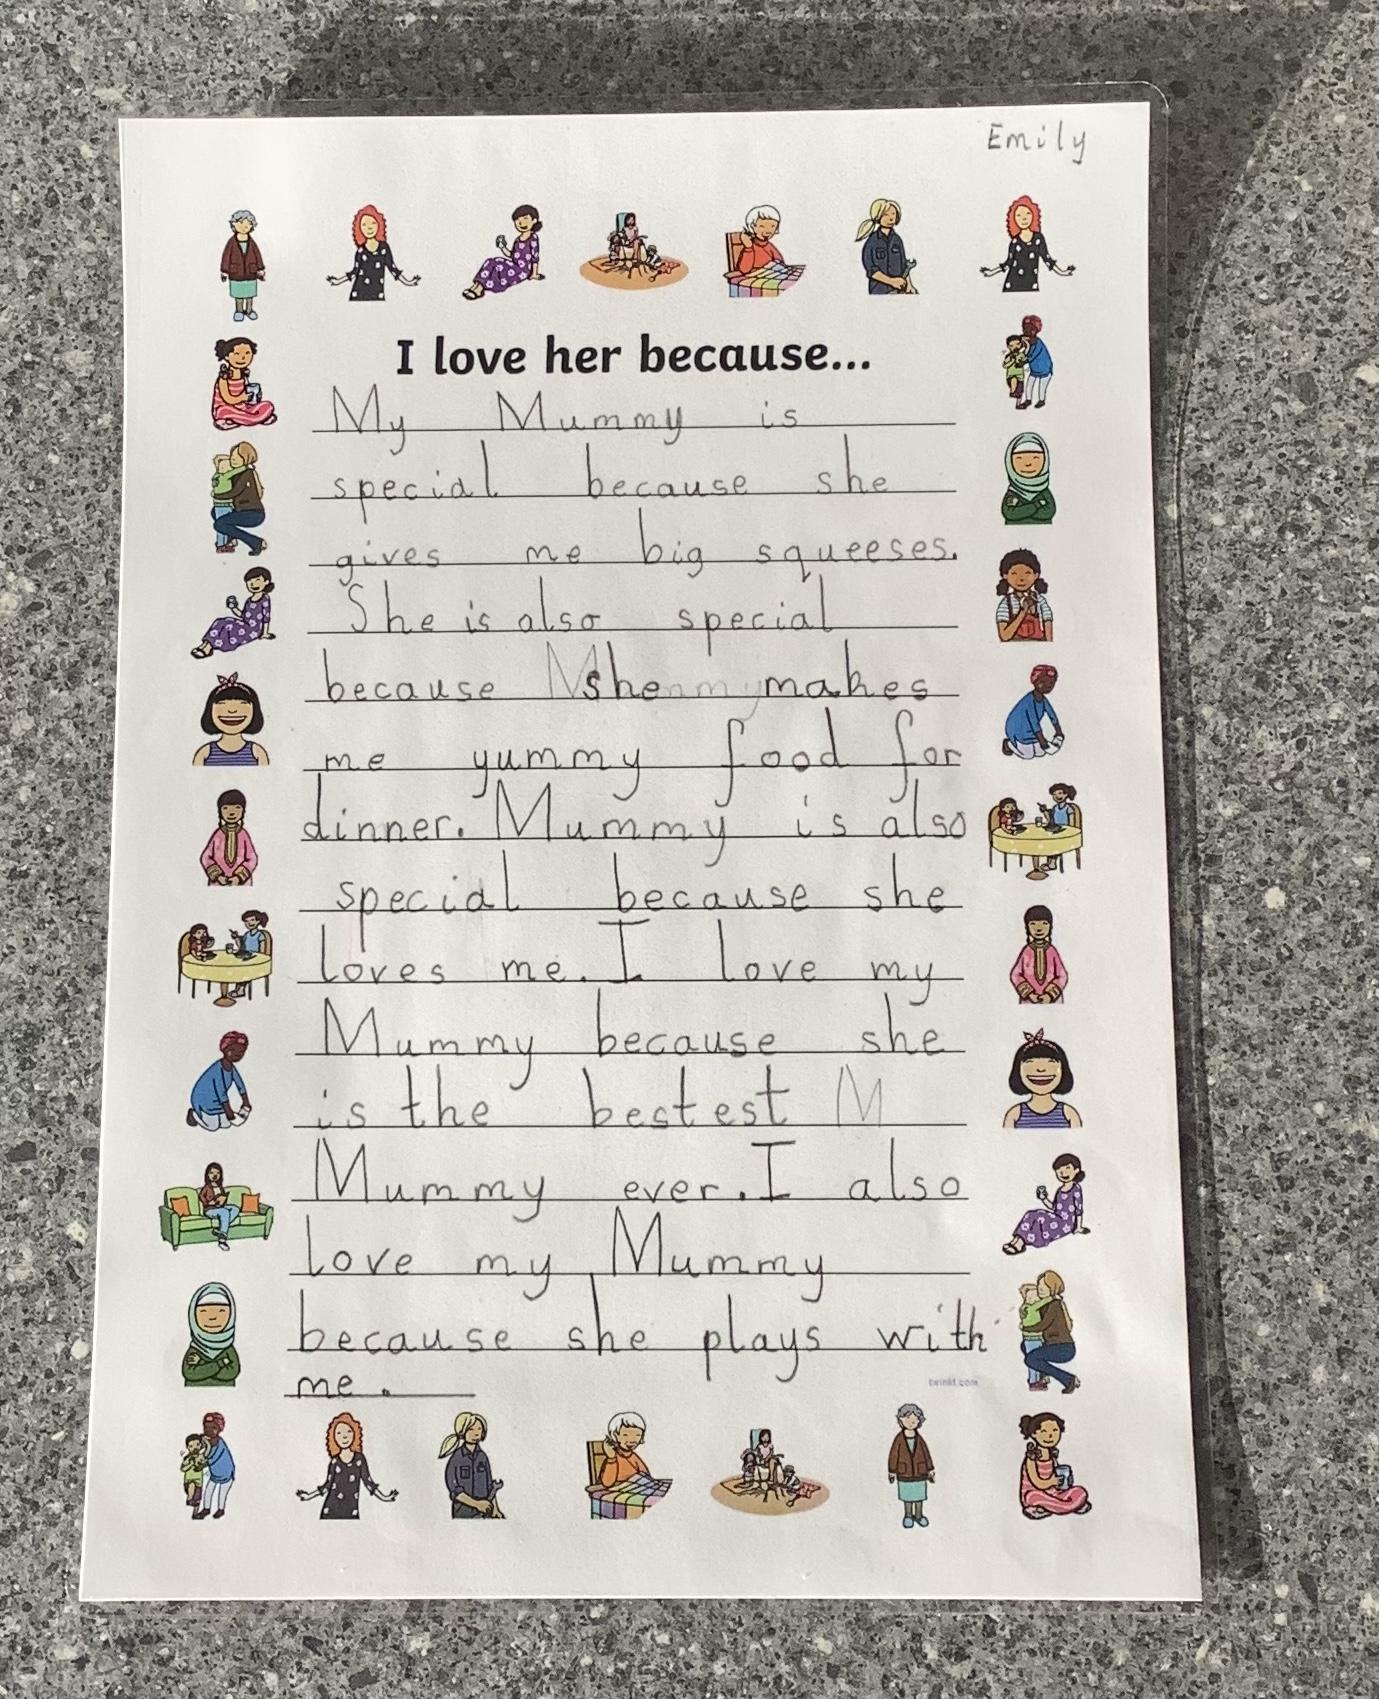 Emily
I love her because...
My Mummy is
special because she
gives me big squeeses.
She is also special
because she makes
me yummy food for
dinner. Mummy is also
special because she
loves me. I love my
Mummy because she
is the bestest M
Mummy ever. I also
love my Mummy
because she plays with
me.
twinkl.com